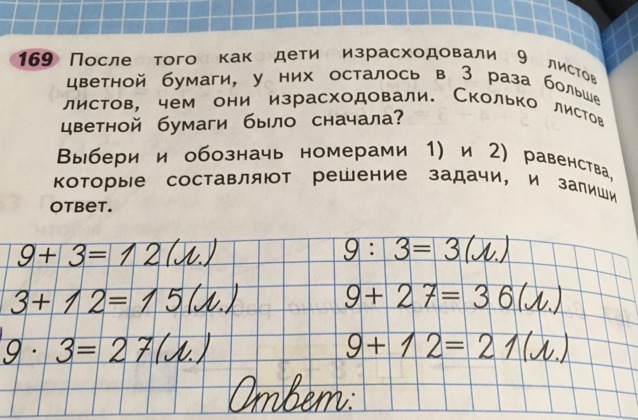 169 После того как дети израсходовали 9 листов
цветной бумаги, у них осталось в 3 раза больше
листов, чем они израсходовали. Сколько листов
цветной бумаги было сначала?
Выбери и обозначь номерами 1) и 2) равенства,
которые составляют решение задачи, и запиши
ответ.
9 + 3 = 12 (л.) 9 : 3 = 3 (л.)
3 + 12 = 15 (л.) 9 + 27 = 36 (л.)
9 · 3 = 27 (л.) 9 + 12 = 21 (л.)
Ответ: